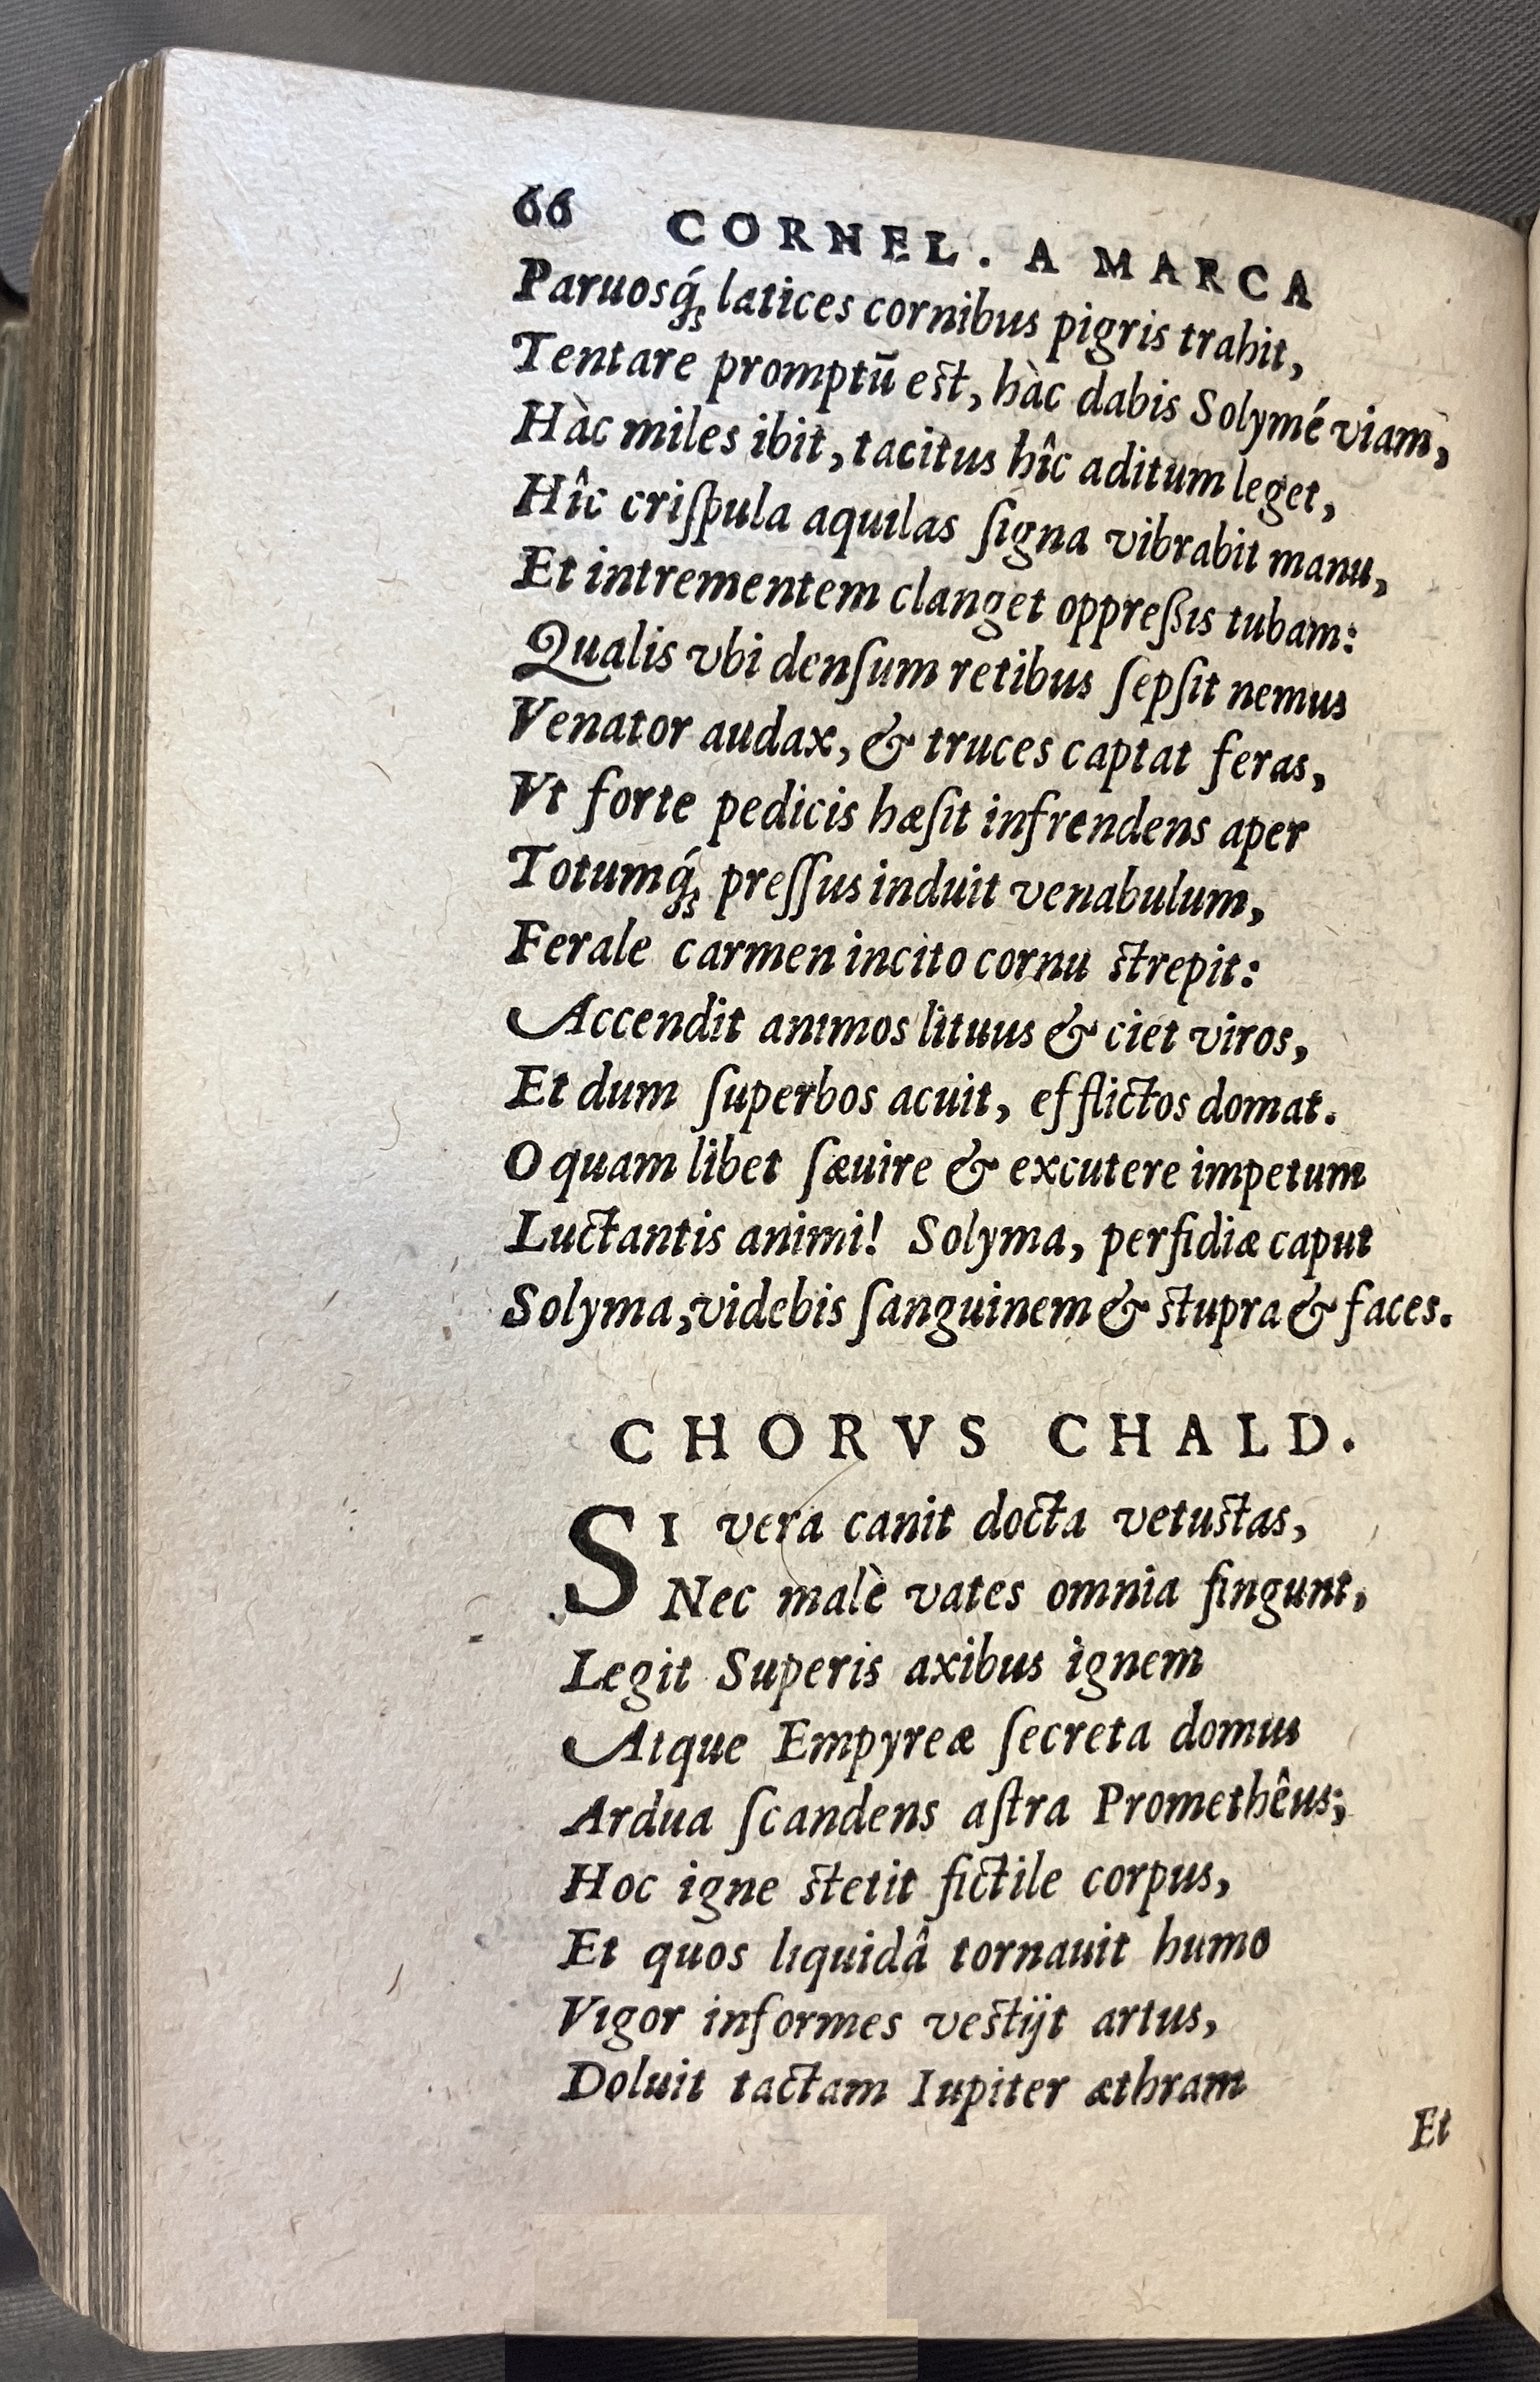 66 CORNEL. A MARCA
Paruosq́ꝫ latices cornibus pigris trahit,
Tentare promptū est, hàc dabis Solymé viam,
Hàc miles ibit, tacitus hîc aditum leget,
Hîc criſpula aquilas ſigna vibrabit manu,
Et intrementem clanget oppreßis tubam:
Qualis vbi denſum retibus ſepſit nemus
Venator audax, & truces captat feras,
Vt forte pedicis hæſit infrendens aper
Totumq́ꝫ preſſus induit venabulum,
Ferale carmen incito cornu strepit:
Accendit animos lituus & ciet viros,
Et dum ſuperbos acuit, efflictos domat.
O quam libet ſæuire & excutere impetum
Luctantis animi! Solyma, perfidiæ caput
Solyma, videbis ſanguinem & stupra & faces.
CHORVS CHALD.
SI vera canit docta vetustas,
Nec malè vates omnia fingunt,
Legit Superis axibus ignem
Atque Empyreæ ſecreta domus
Ardua ſcandens aſtra Promethêus;
Hoc igne stetit fictile corpus,
Et quos liquidâ tornauit humo
Vigor informes vestijt artus,
Doluit tactam Iupiter æthram
Et